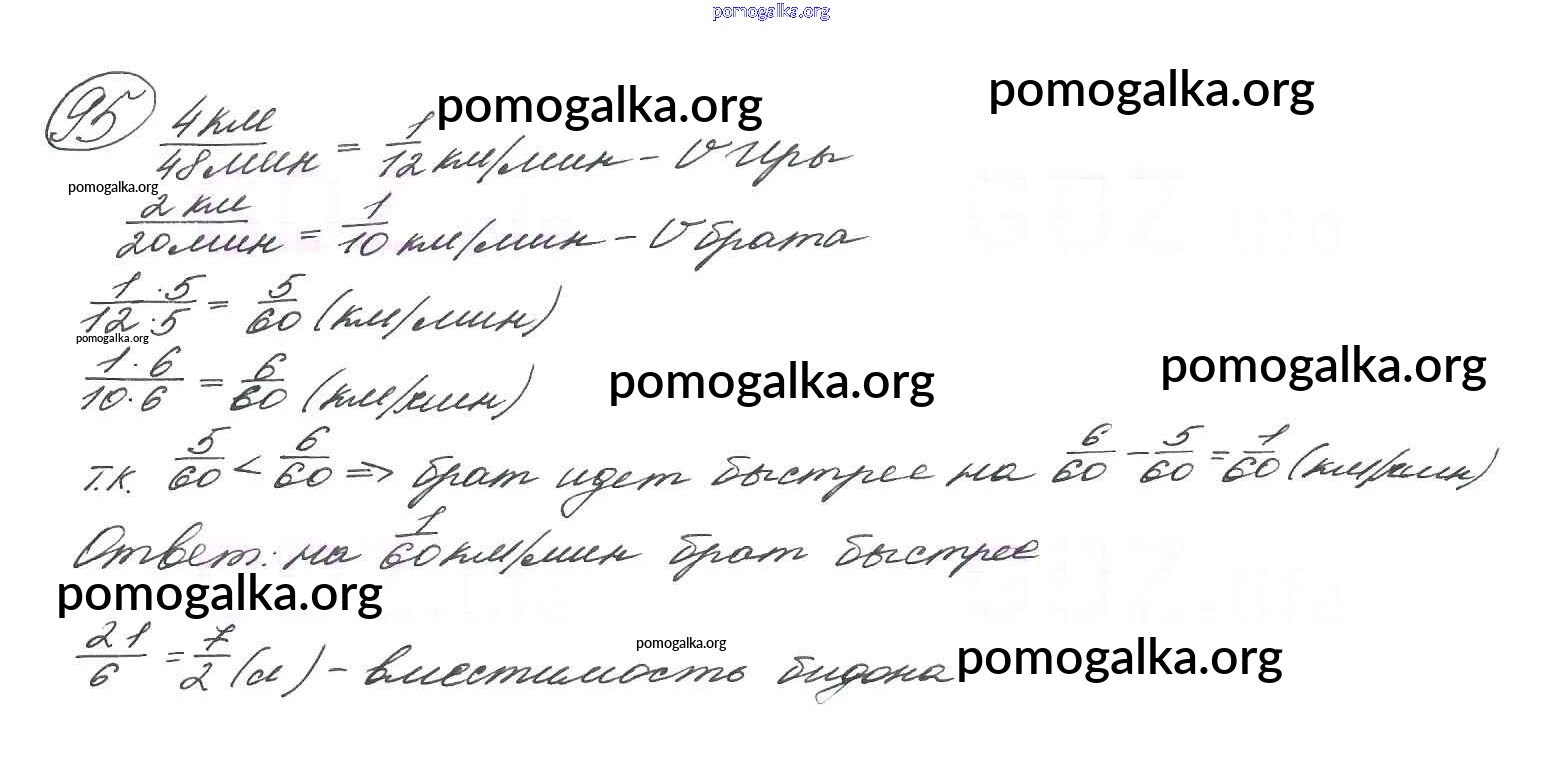 pomogalka.org
pomogalka.org
pomogalka.org
95 4км/48мин = 1/12 км/мин - V Иры
pomogalka.org
2 км/20мин = 1/10 км/мин - V брата
1·5/12·5 = 5/60 (км/мин)
pomogalka.org
1·6/10·6 = 6/60 (км/мин)
pomogalka.org
pomogalka.org
т.к. 5/60 < 6/60 => брат идет быстрее на 6/60 - 5/60 = 1/60 (км/мин)
Ответ: на 1/60 км/мин брат быстрее
pomogalka.org
21/6 = 7/2 (л) - вместимость бидона
pomogalka.org
pomogalka.org